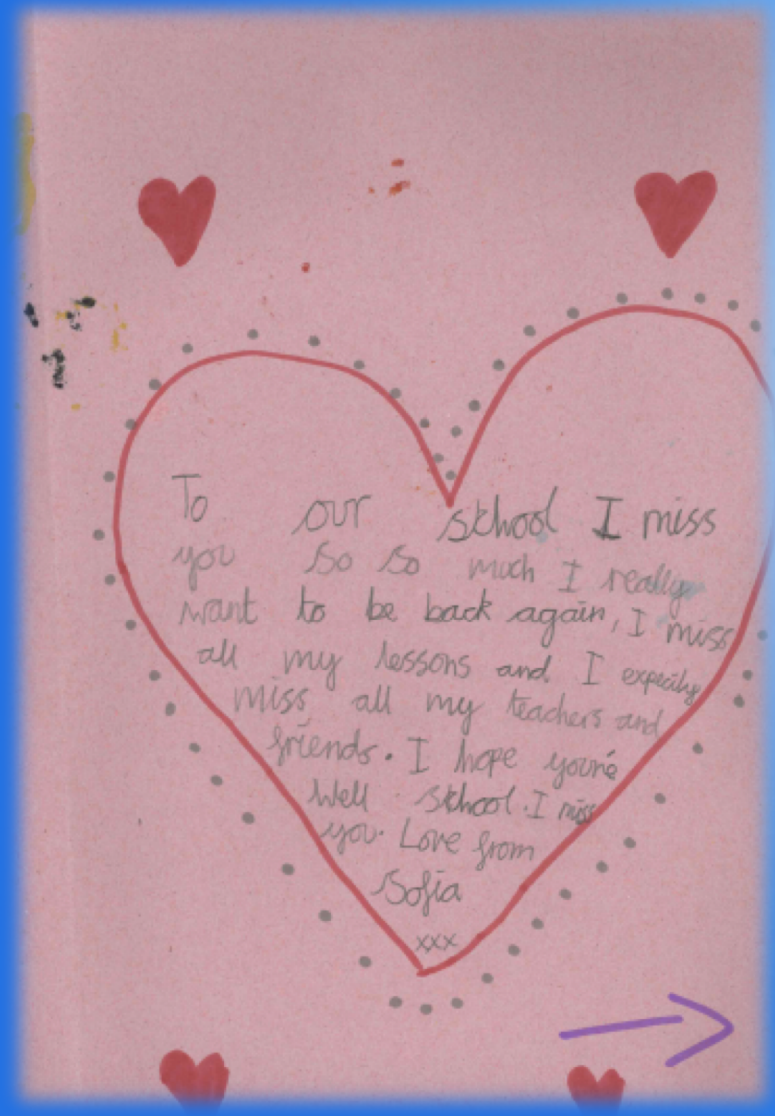 To our school I miss
you so so much I really
want to be back again, I miss
all my lessons and I expecilly
miss all my teachers and
friends. I hope you're
Well school. I miss
you. Love from
Sofia
xxx